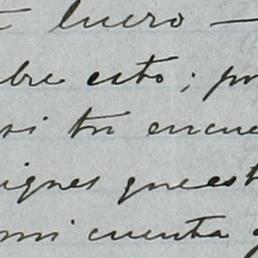 lucro —
bre esto; pr
si tu encue
ignes que est
mi cuenta